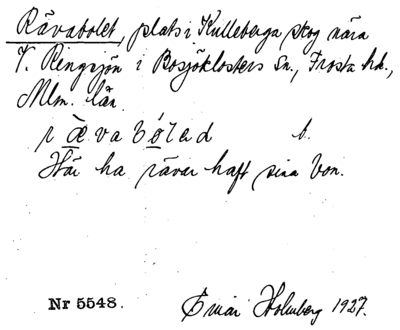 Rävabolet, plats i Kulleberga skog nära
V. Ringsjön i Bosjöklosters Sn., Frosta hd.,
Mlm. län.
rævabøled b.
Här ha rävar haft sina bon.
Nr 5548. Einar Holmberg 1927.